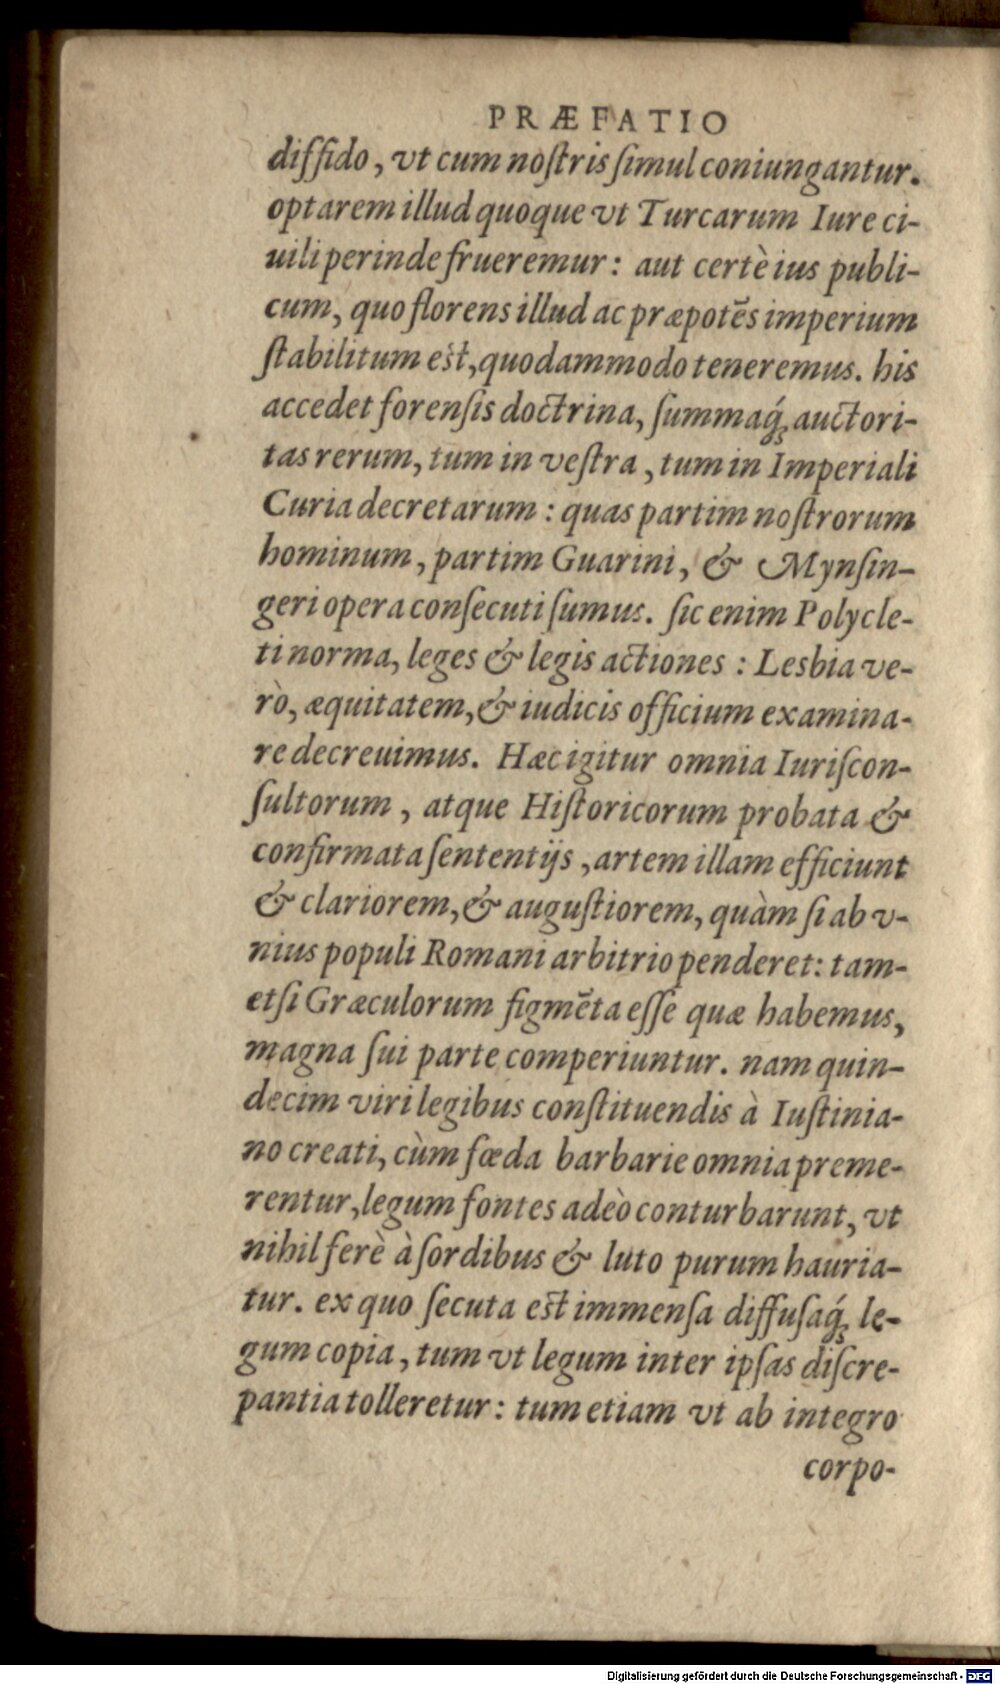 PRÆFATIO
diffido, vt cum noſtris ſimul coniungantur.
optarem illud quoque vt Turcarum Iure ci-
uili perinde frueremur: aut certè ius publi-
cum, quo florens illud ac præpotēs imperium
ſtabilitum eſt, quodammodo teneremus. his
accedet forenſis doctrina, ſummaq́ꝫ auctori-
tas rerum, tum in veſtra, tum in Imperiali
Curia decretarum: quas partim noſtrorum
hominum, partim Guarini, & Mynſin-
geri opera conſecuti ſumus. ſic enim Polycle-
ti norma, leges & legis actiones: Lesbia ve-
rò, æquitatem, & iudicis officium examina-
re decreuimus. Hæc igitur omnia Iuriſcon-
ſultorum, atque Hiſtoricorum probata &
confirmata ſententijs, artem illam efficiunt
& clariorem, & auguſtiorem, quàm ſi ab v-
nius populi Romani arbitrio penderet: tam-
etſi Græculorum figmēta eſſe quæ habemus,
magna ſui parte comperiuntur. nam quin-
decim viri legibus conſtituendis à Iuſtinia-
no creati, cùm fœda barbarie omnia preme-
rentur, legum fontes adeò conturbarunt, vt
nihil ferè à ſordibus & luto purum hauria-
tur. ex quo ſecuta eſt immenſa diffuſaq́ꝫ le-
gum copia, tum vt legum inter ipſas diſcre-
pantia tolleretur: tum etiam vt ab integro
corpo-
Digitalisierung gefördert durch die Deutsche Forschungsgemeinschaft - DFG